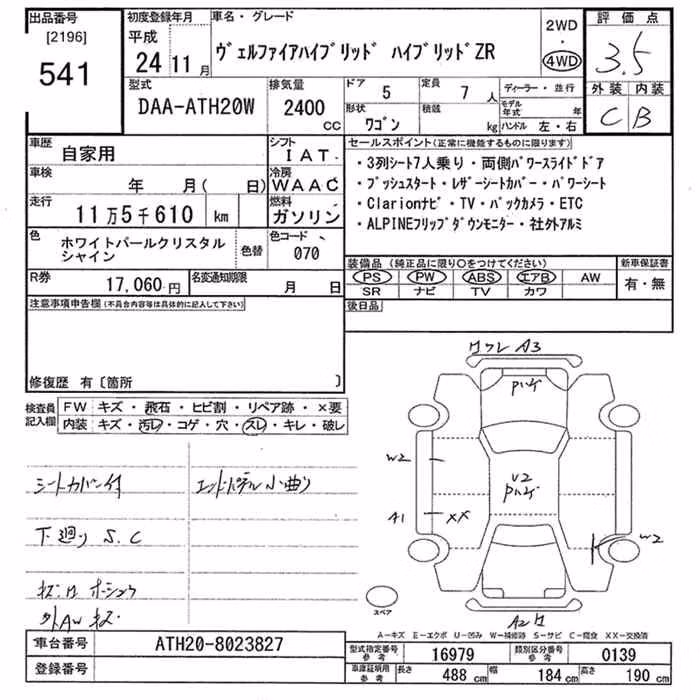 出品番号
[2196]
541
初度登録年月
平成
24 11 月
車名・グレード
ヴェルファイアハイブリッド ハイブリッドZR
2WD
・
4WD
評価点
3.5
外装 内装
C B
型式
DAA-ATH20W
排気量
2400
CC
ドア
5
定員
7 人
形状
ワゴン
積載
kg
ディーラー・並行
モデル年式 年
ハンドル 左・右
車歴
自家用
シフト
IAT
車検
年 月( 日)
冷房
WAAC
走行
11万5千610 km
燃料
ガソリン
色
ホワイトパールクリスタル
シャイン
色替
色コード
070
R券
17,060円
名変通知期限
月 日
セールスポイント(正常に機能するものに限ります)
・3列シート7人乗り・両側パワースライドドア
・プッシュスタート・レザーシートカバー・パワーシート
・Clarionナビ・TV・バックカメラ・ETC
・ALPINEフリップダウンモニター・社外アルミ
装備品(純正品に限り○をつけてください)
PS PW ABS エアB AW
SR ナビ TV カワ
新車保証書
有・無
後日品
注意事項申告欄(不具合内容等は具体的に記入して下さい)
修復歴 有〔箇所 〕
検査員
記入欄
FW キズ・飛石・ヒビ割・リペア跡・×要
内装 キズ・汚レ・コゲ・穴・スレ・キレ・破レ
シートカバー付
下廻り S.C
エンドパネル小曲り
外AWキズ
ワレ A3
W2
U2
A1
XX
W2
A2
スペア
A―キズ E―エクボ U―凹み W―補修跡 S―サビ C―腐食 XX―交換済
車台番号
ATH20-8023827
登録番号
型式指定番号
参考
16979
類別区分番号
参考
0139
車庫証明用
参考
長さ 488 cm 幅 184 cm 高さ 190 cm